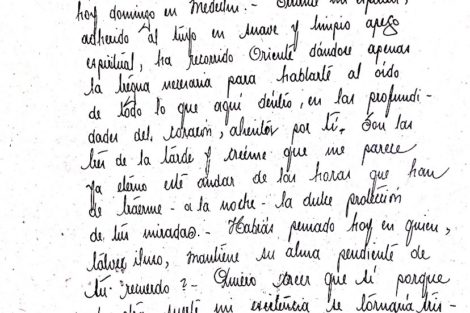 hoy domingo en Medellín.- Durante mi espíritu,
adherido al tuyo en suave y limpio apego
espiritual, ha recorrido Oriente dándose apenas
la tregua necesaria para hablarte al oído
de todo lo que aquí dentro, en las profundi-
dades del corazón, alientos por ti. Son las
tres de la tarde y créeme que me parece
ya eterno este andar de las horas que han
de traerme - a la noche - la dulce protección
de tus miradas.- Habrás pensado hoy en quien,
talvez iluso, mantiene su alma pendiente de
tu recuerdo?- Quiero creer que sí porque
mi existencia se tornaría tris-